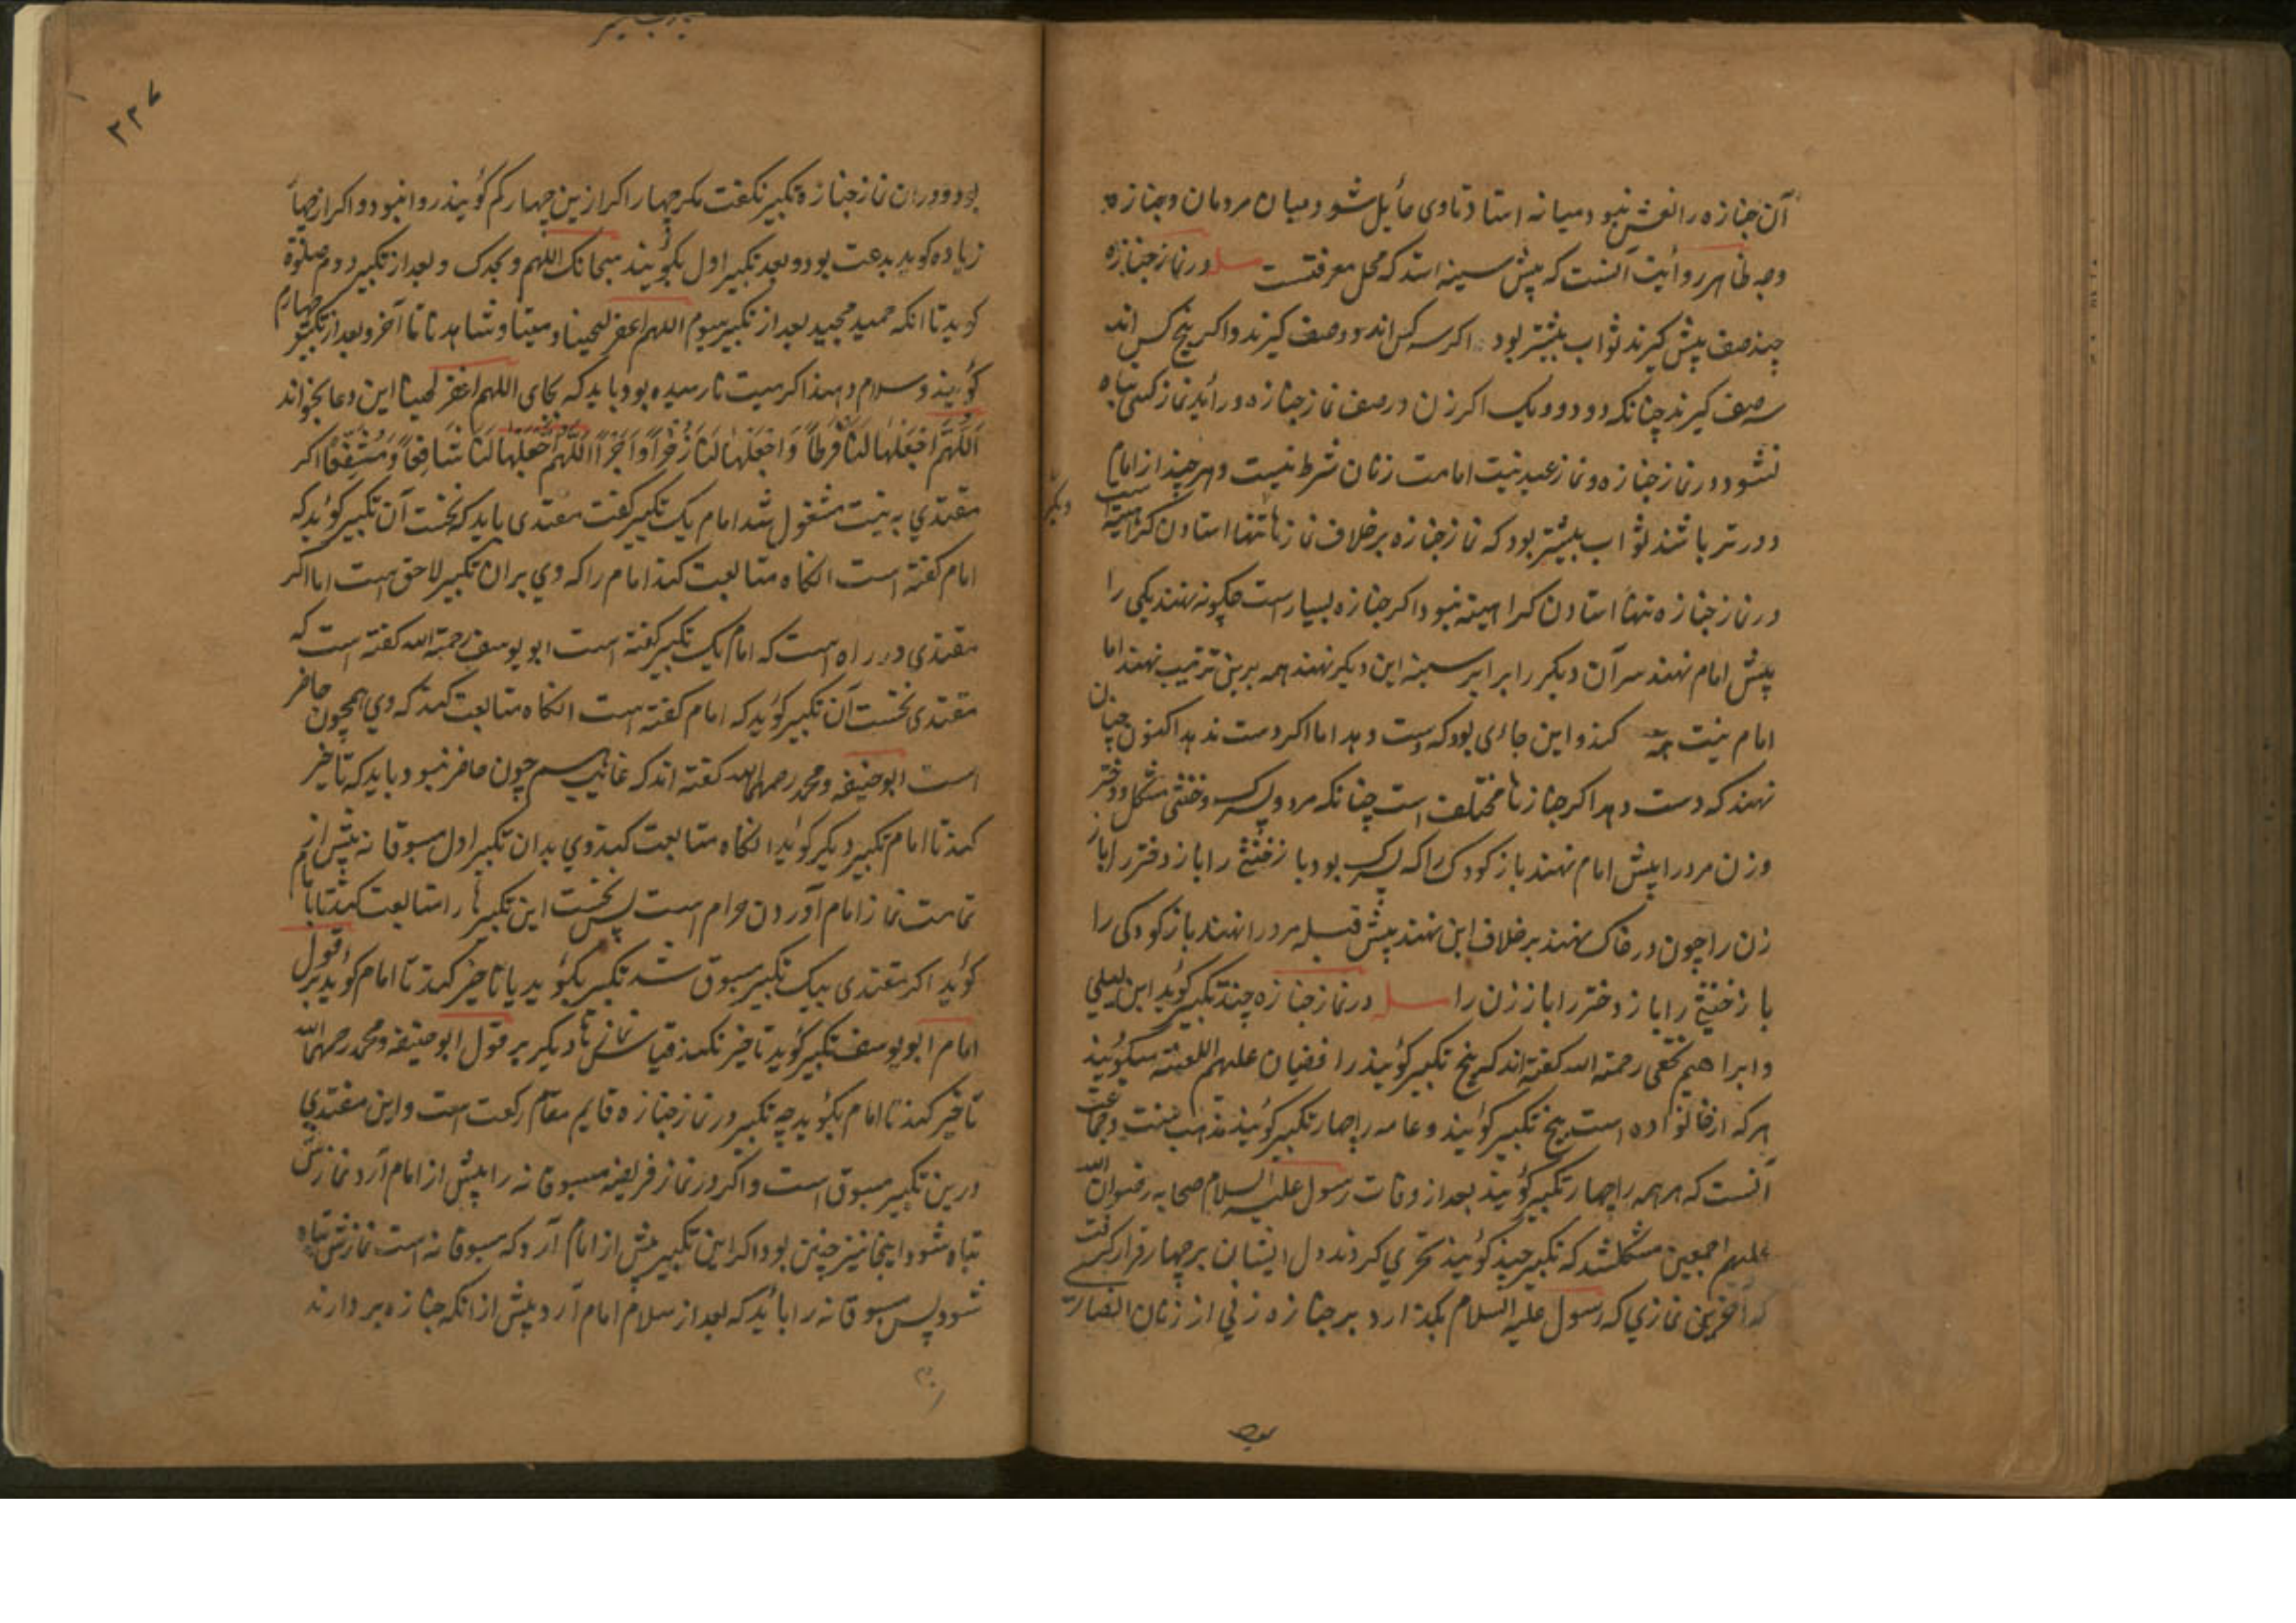 آن جنازه را نعش نبود میانه استادتا وی مائل شود میان مردمان و جنازه
وجه ظاهر روائیت آنست که پیش سینه استد که محل معرفتست مسله در نماز جنازه
چند صف پیش کیرند ثواب بیشتر بود اکر سه کس اند دو صف کیرند و اکر پنج کس اند
سه صف کیرند چنانکه دو و دو و یک اکر زن در صف نماز جنازه در آید نماز کسی تباه
نشود در نماز جنازه و نماز عید نیت امامت زنان شرط نیست و هر چند از امام
دورتر باشند ثواب بیشتر بود که نماز جنازه بر خلاف نمازها تنها استادن کراهیته است
در نماز جنازه تنها استادن کراهیته نبود اکر جنازه بسیار است چکونه نهند یکی را
پیش امام نهند سر آن دیکر را برابر سینه این دیکر نهند همه برین ترتیب نهند اما
امام نیت همه کند و این جائی بود که دست دهد اما اکر دست ندهد اکنون چنان
نهند که دست دهد اکر جنازها مختلف است چنانکه مرد و پسرک و خنثی مشکل و دختر
و زن مرد را پیش امام نهند باز کودک را که پسرک بود باز خنثی را باز دختر را باز
زن را چون در خاک نهند بر خلاف این نهند پیش قبله مرد را نهند باز کودکی را
باز خنثی را باز دختر را باز زن را مسله در نماز جنازه چند تکبیر کوئید ابن لیلی
و ابراهیم نخعی رحمة الله کفته اند که پنج تکبیر کوئیند رافضیان علیهم اللعنته میکوئیند
هر که از خانواده است پنج تکبیر کوئیند و عامه را چهار تکبیر کوئیند مذهب سنت و جماعت
آنست که هر همه را چهار تکبیر کوئیند بعد از وفات رسول علیه السلام صحابه رضوان الله
علیهم اجمعین مشکلشد که تکبیر چند کوئیند تحری کردند دل ایشان بر چهار قرار کرفت
که آخرین نمازی که رسول علیه السلام بکذارد بر جنازه زنی از زنان انصار
دیکر
۲۲۷
بود و در ان نماز جنازه تکبیر نکفت مکر چهار اکر ازین چهار کم کوئیند روا نبود و اکر از چهار
زیاده کوید بدعت بود و بعد تکبیر اول بکوئیند سبحانک اللهم و بحمدک و بعد از تکبیر دوم صلوة
کوید تا انکه حمید مجید بعد از تکبیر سیوم اللهم اغفر لحینا و میتنا و شاهدنا تا آخر و بعد از تکبیر چهارم
کوئیند و سلام دهند اکر میت نارسیده بود باید که بجای اللهم اغفر لحینا این دعا بخواند
اَللّٰهُمَّ اجْعَلْهَا لَنَا فَرَطًا وَاجْعَلْهَا لَنَا ذُخْرًا وَاَجْرًا اَللّٰهُمَّ اجْعَلْهَا لَنَا شَافِعًا وَمُشَفَّعًا اکر
مقتدی به نیت مشغول شد امام یک تکبیر کفت مقتدی باید که نخست آن تکبیر کوید که
امام کفته است انکاه متابعت کند امام را که وی بر ان تکبیر لاحق است اما اکر
مقتدی در راه است که امام یک تکبیر کفته است ابو یوسف رحمة الله کفته است که
مقتدی نخست آن تکبیر کوید که امام کفته است انکاه متابعت کند که وی همچون حاضر
است ابو حنیفه و محمد رحمهما الله کفته اند که غائب هم چون حاضر نبود باید که تاخیر
کند تا امام تکبیر دیکر کوید انکاه متابعت کند وی بدان تکبیر اول مسبوقانه پیش از
تمامت نماز امام آوردن حرام است پس نخست این تکبیرها را متابعت کند تا بامام
کوئید اکر مقتدی بیک تکبیر مسبوق شد تکبیر بکوئید یا تاخیر کند تا امام کوید بر قول
امام ابو یوسف تکبیر کوید تاخیر نکند قیاس نمازهاء دیکر بر قول ابو حنیفه و محمد رحمهما الله
تاخیر کند تا امام بکوید چه تکبیر در نماز جنازه قایم مقام رکعت است و این مقتدی
درین تکبیر مسبوق است و اکر در نماز فریضه مسبوقانه را پیش از امام آرد نمازش
تباه شود اینجا نیز چنین بود اکر این تکبیر پیش از امام آرد که مسبوقانه است نمازش تباه
شود پس مسبوقانه را باید که بعد از سلام امام آرد پیش از انکه جنازه بردارند